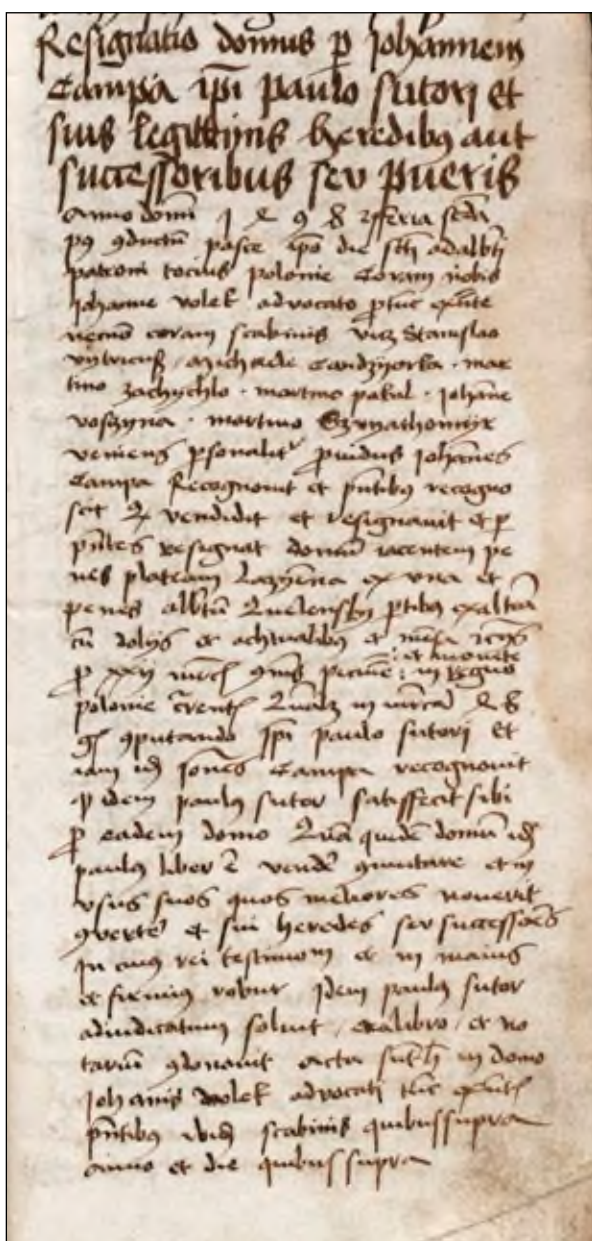 Resignatio domus p Johannem
Campa ipi paulo sutori et
suis legittimis heredibus aut
successoribus seu pueris
Anno domi feria scda
po 9ductu pasce ipo die scti adalbti
patroni tocius polonie Coram nobis
Johanne volek advocato ptuc exnte
necno coram scabinis vicz Stanislao
Michaele mar
tino zachychlo martino pakul Johane
voszyna martino
veniens psonalit pvidus Johannes
Campa Recognovit et pntibus recogno
scit q vendidit et resignavit et p
pntes resignat domu iacentem pe
nes plateam Lazyenna ex una et
penes albtu ptibus ex altera
cu doliis et et mesa
p xxii mrc pecunie et monete in Regno
polonie in mrca
gs 9putando Ipi paulo sutori et
iam id Johnes Campa recognovit
q idem paulus sutor satisfecit sibi
p eadem domo Qua quide domu id
paulus liber e vende 9mutare et in
usus suos quos meliores noverit
9verte et sui heredes seu successores
In cuius rei testimom et in maius
et firmius robur Idem paulus sutor
adiudicatum solvit et no
tariu 9donavit Acta sunt h in domo
Johanis volek advocati tuc exnt
pntibus ibid scabinis quibus supra
anno et die quibus supra